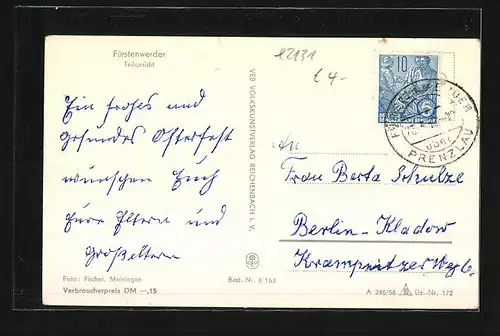 Fürstenwerder
Teilansicht
e2131
€ 4-
10
Ein frohes und
gesundes Osterfest
wünschen Euch
Eure Eltern und
Großeltern
VEB VOLKSKUNSTVERLAG REICHENBACH I. V.
An
Frau Berta Schulze
Berlin-Kladow
Krampnitzer Weg
ÜBER
PRENZLAU
Foto: Fischer, Meiningen
Verbraucherpreis DM —,15
Best. Nr. 3/153
A 246/56 Liz.-Nr. 172